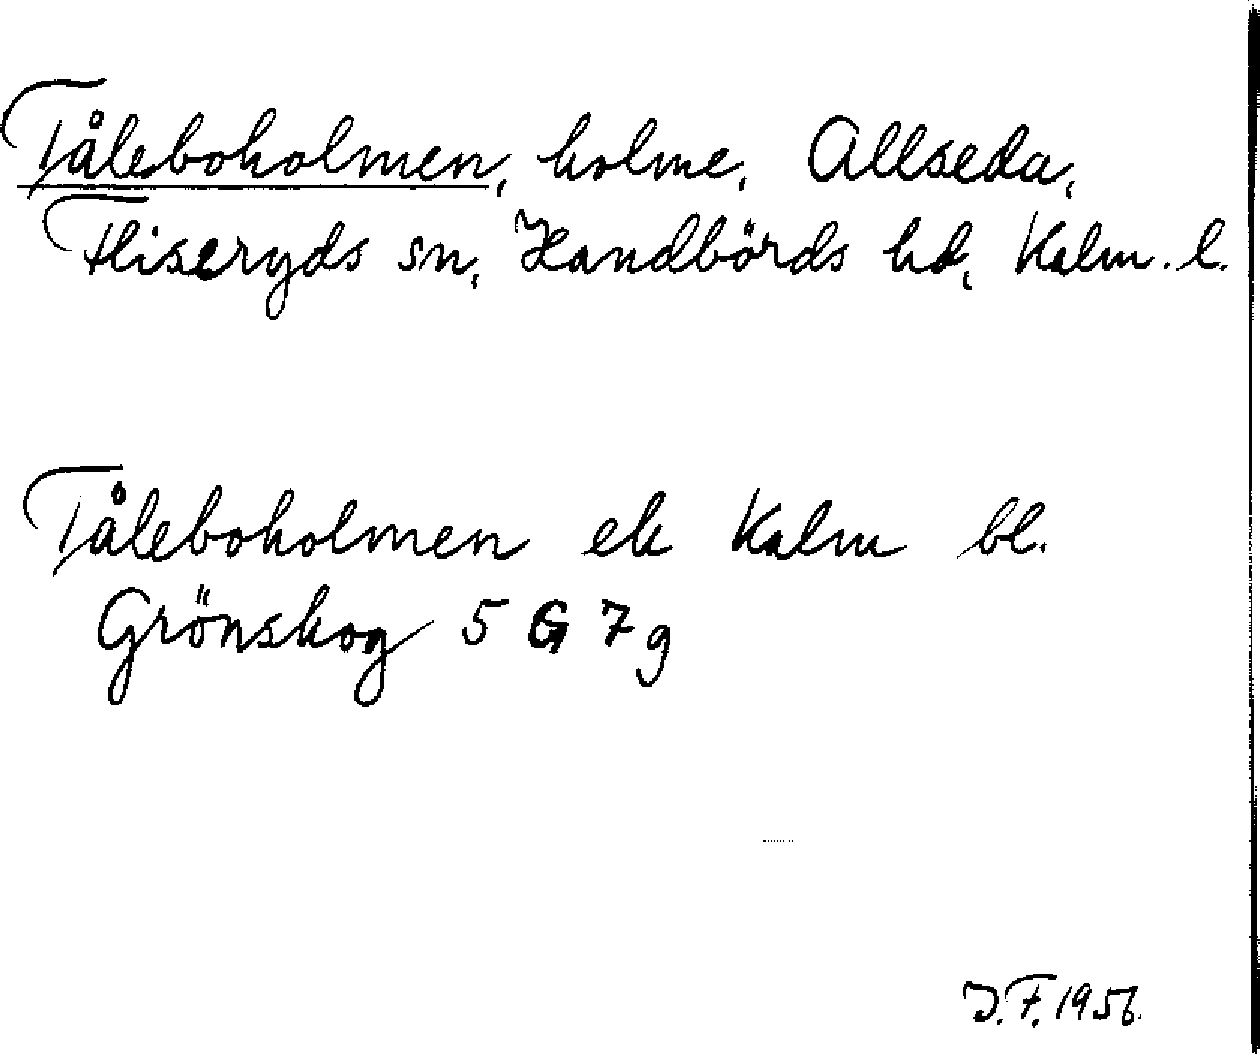 Tåleboholmen, holme, Allseda,
Fliseryds sn, Handbörds hd, Kalm. l.
Tåleboholmen ek Kalm bl.
Grönskog 5 G 7 g
J.F. 1956.